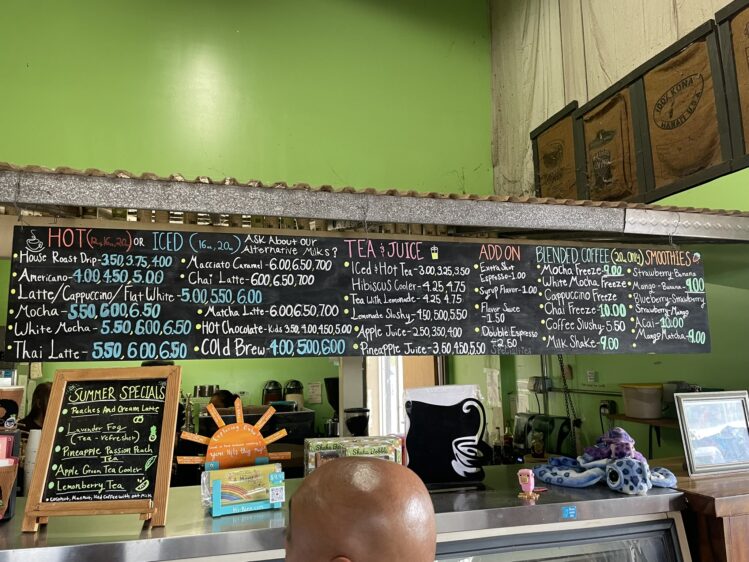 HOT (12, 16, 20) or ICED (16, 20)
House Roast Drip - 3.50, 3.75, 4.00
Americano - 4.00, 4.50, 5.00
Latte/Cappuccino/Flat White - 5.00, 5.50, 6.00
Mocha - 5.50, 6.00, 6.50
White Mocha - 5.50, 6.00, 6.50
Thai Latte - 5.50, 6.00, 6.50
Ask About our
Alternative Milks?
Macciato Caramel - 6.00, 6.50, 7.00
Chai Latte - 6.00, 6.50, 7.00
Matcha Latte - 6.00, 6.50, 7.00
Hot Chocolate - Kids 3.50, 4.00, 4.50, 5.00
Cold Brew - 4.00, 5.00, 6.00
TEA & JUICE
Iced & Hot Tea - 3.00, 3.25, 3.50
Hibiscus Cooler - 4.25, 4.75
Tea with Lemonade - 4.25, 4.75
Lemonade Slushy - 4.50, 5.00, 5.50
Apple Juice - 2.50, 3.50, 4.00
Pineapple Juice - 3.60, 4.50, 5.50
ADD ON
Exrta Shot
Espresso - 1.00
Syrup Flavor - 1.00
Flavor Juice
- 1.50
Double Espresso
- 2.50
BLENDED COFFEE (20z only)
Mocha Freeze - 9.00
White Mocha Freeze
Cappuccino Freeze
Chai Freeze - 10.00
Coffee Slushy - 5.50
Milk Shake - 9.00
SMOOTHIES
Strawberry - Banana
Mango - Banana
9.00
Blueberry - Strawberry
Strawberry - Mango
Acai - 10.00
Mango Matcha - 9.00
100% KONA
HAWAII U.S.A
SUMMER SPECIALS
Peaches And Cream Latte
Lavender Fog
(Tea - Refresher)
Pineapple Passion Peach
Tea
Apple Green Tea Cooler
Lemonberry Tea
Shaka Dabba